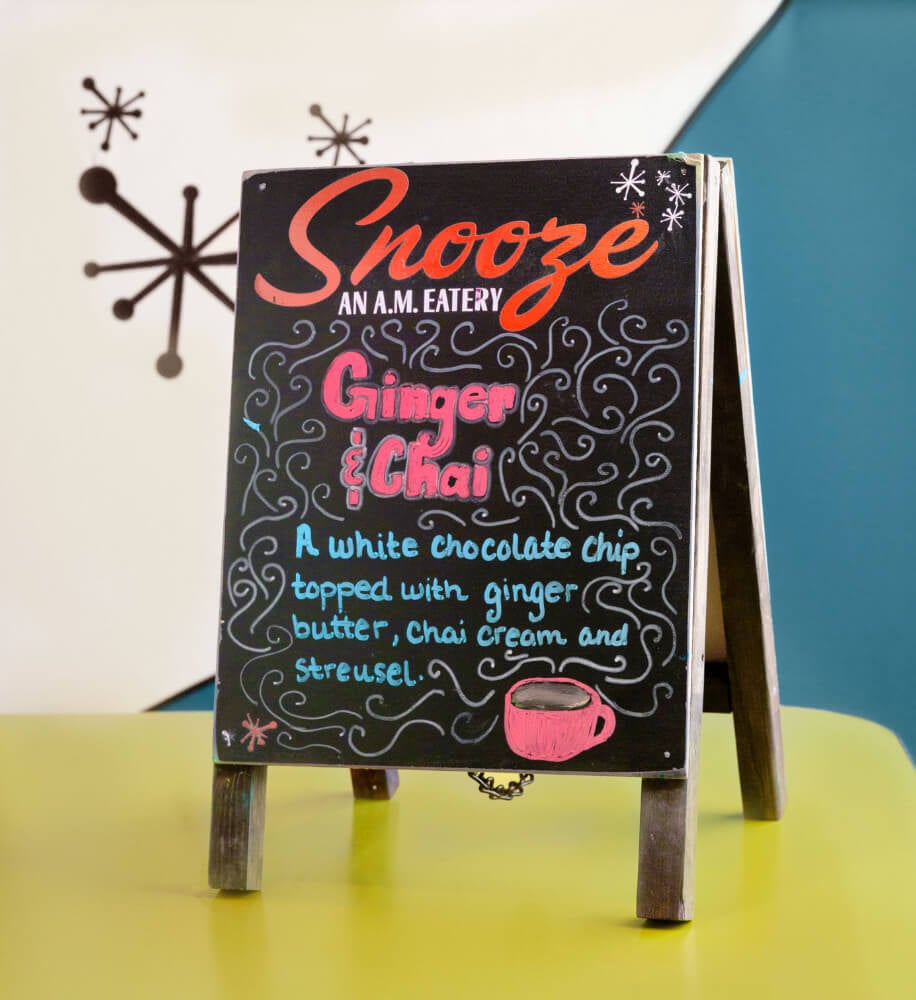 Snooze
AN A.M. EATERY
Ginger
& Chai
A white chocolate chip
topped with ginger
butter, chai cream and
streusel.